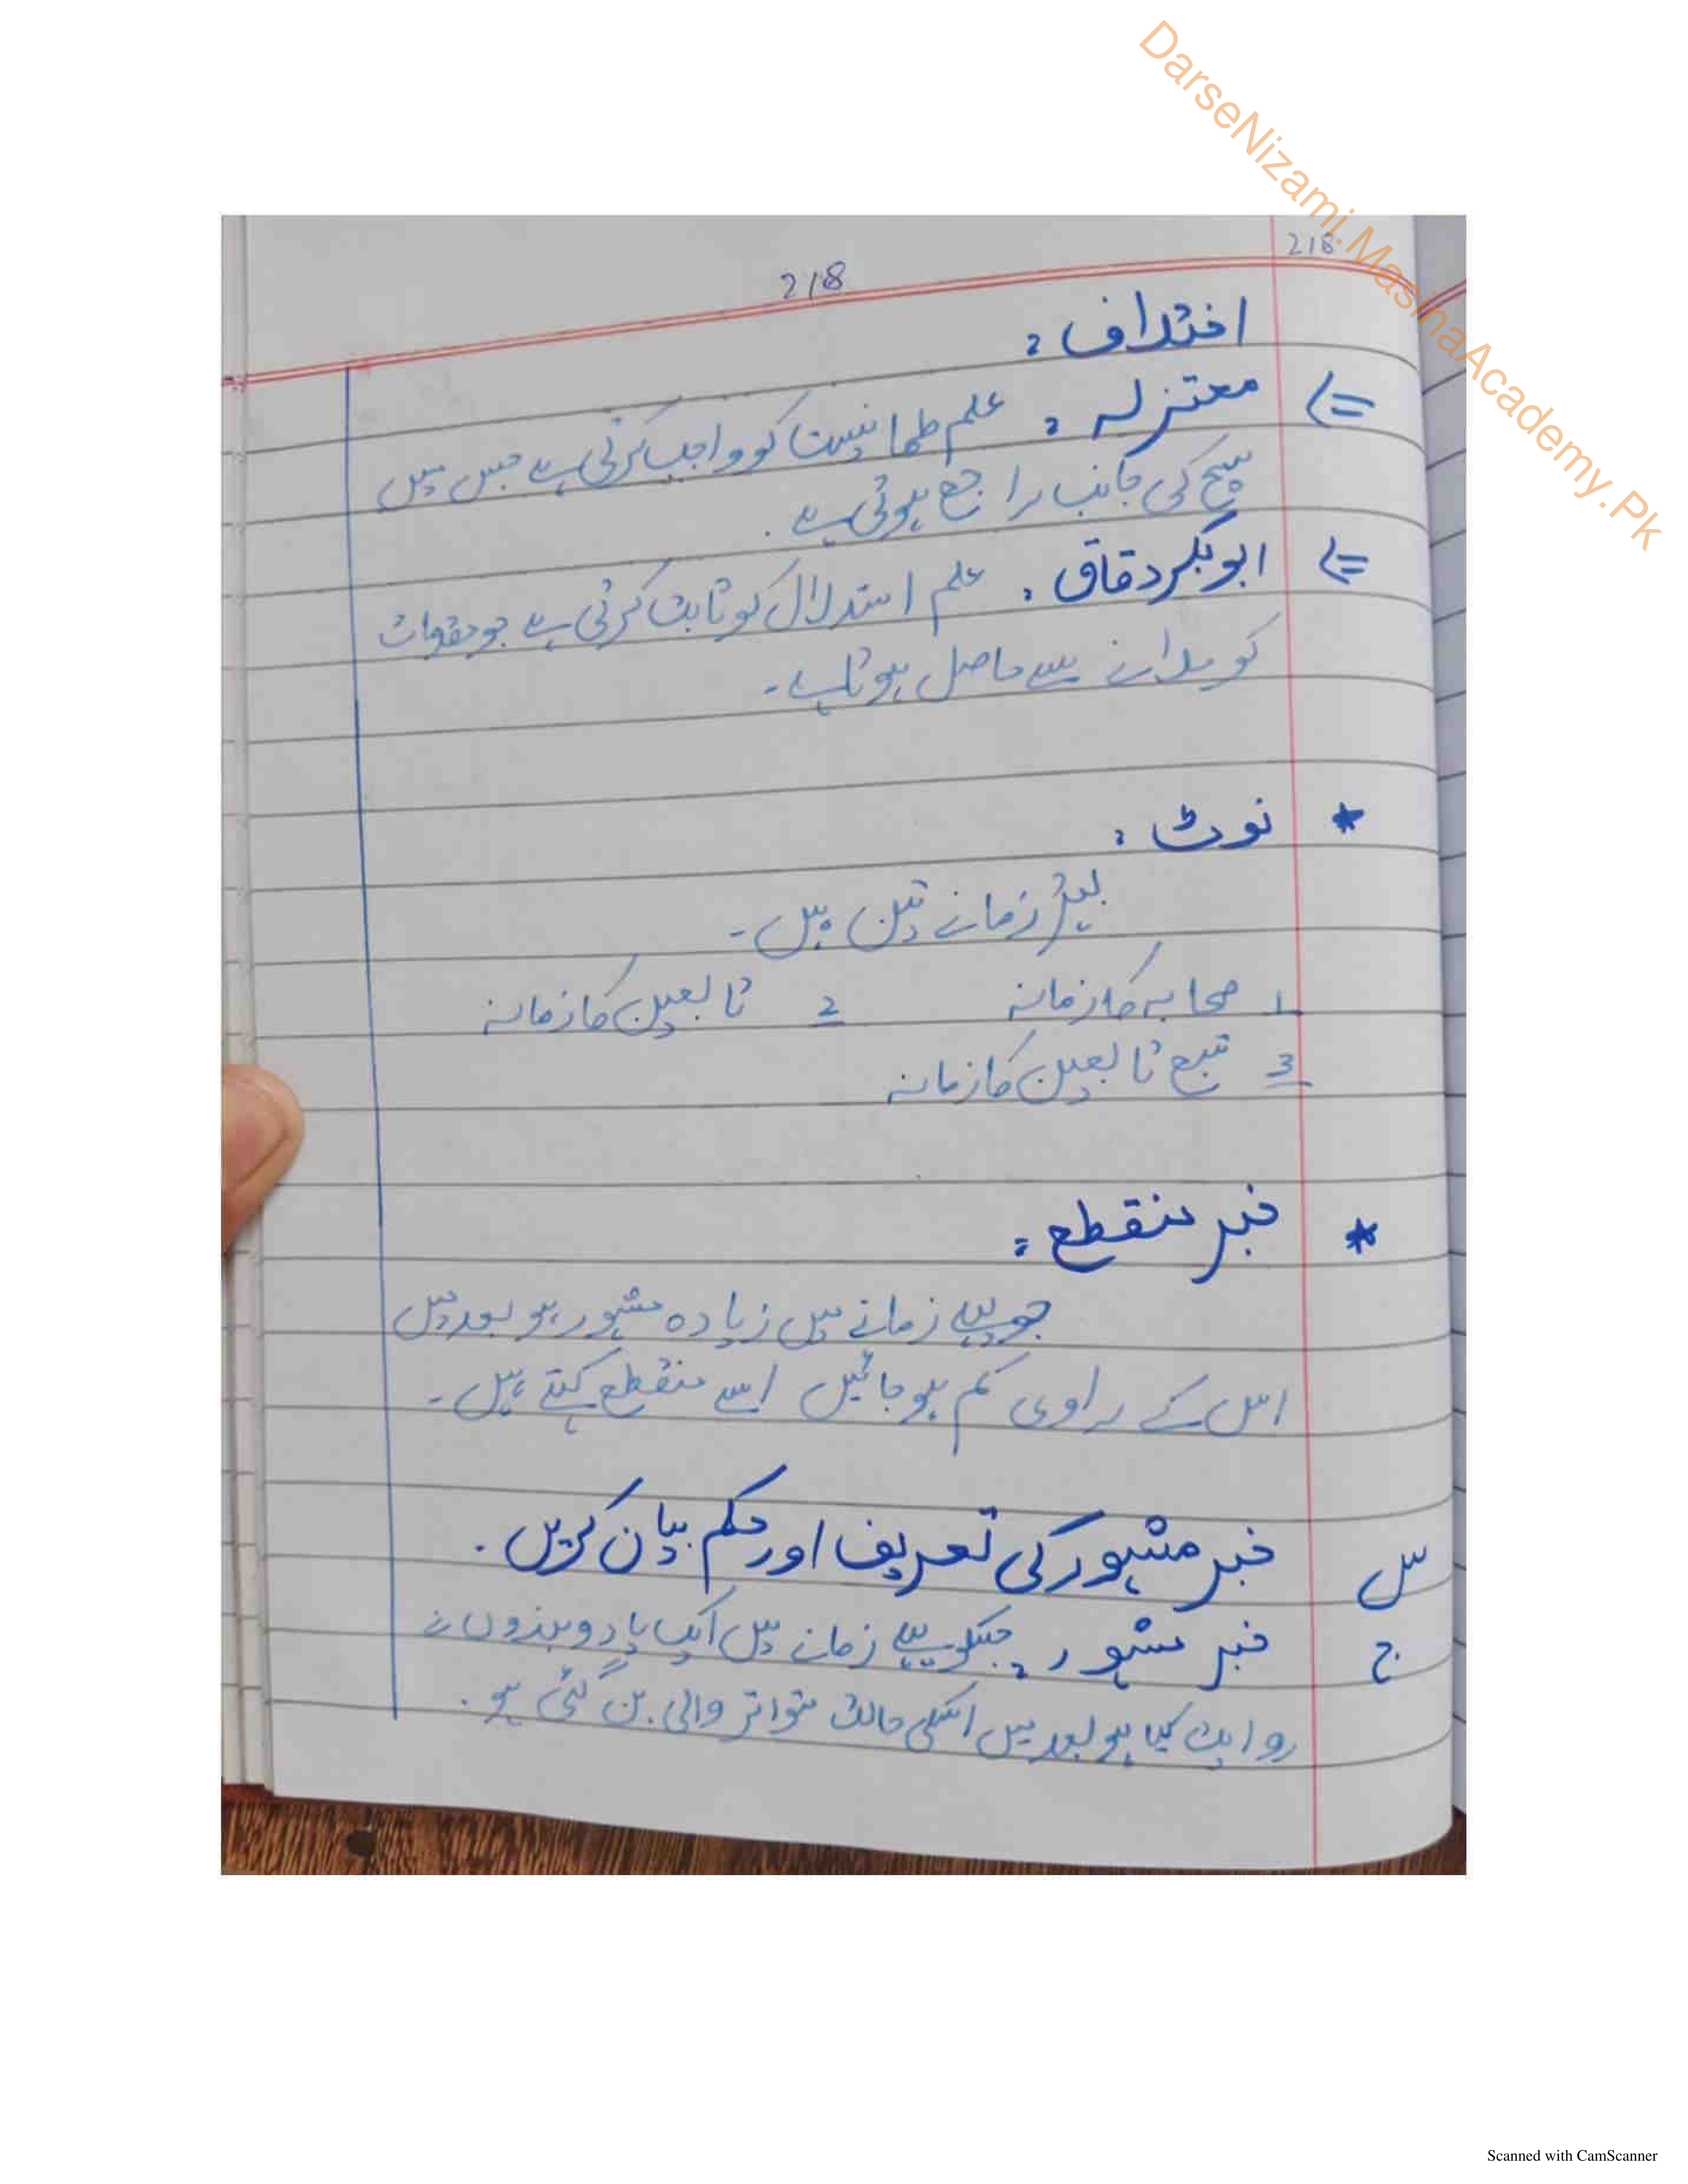 DarseNizami.MasihaAcademy.Pk
218
218
اختلاف :
معتزلہ : علم طمانینت کو واجب کرتی ہے جس میں
سچ کی جانب راجع ہوتی ہے ۔
ابوبکر دقاق : علم استدلال کو ثابت کرتی ہے جو مقدمات
کو ملانے سے حاصل ہوتا ہے ۔
* نوٹ :
بہتر زمانے تین ہیں ۔
1 صحابہ کا زمانہ 2 تابعین کا زمانہ
3 تبع تابعین کا زمانہ
* خبر منقطع :
جو پہلے زمانے میں زیادہ مشہور ہو بعد میں
اس کے راوی کم ہو جائیں اسے منقطع کہتے ہیں ۔
س خبر مشہور کی تعریف اور حکم بیان کریں ۔
ج خبر مشہور : جسکو پہلے زمانے میں ایک یا دو بندوں نے
روایت کیا ہو بعد میں اسکی حالت متواتر والی بن گئی ہو ۔
Scanned with CamScanner